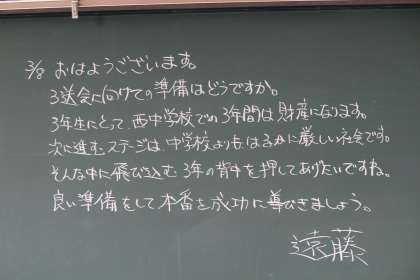 3/8 おはようございます。
3送会に向けての準備はどうですか。
3年生にとって、西中学校での3年間は財産になります。
次に進むステージは中学校よりもはるかに厳しい社会です。
そんな中に飛び込む3年の背中を押してあげたいですね。
良い準備をして本番を成功に導びきましょう。
遠藤